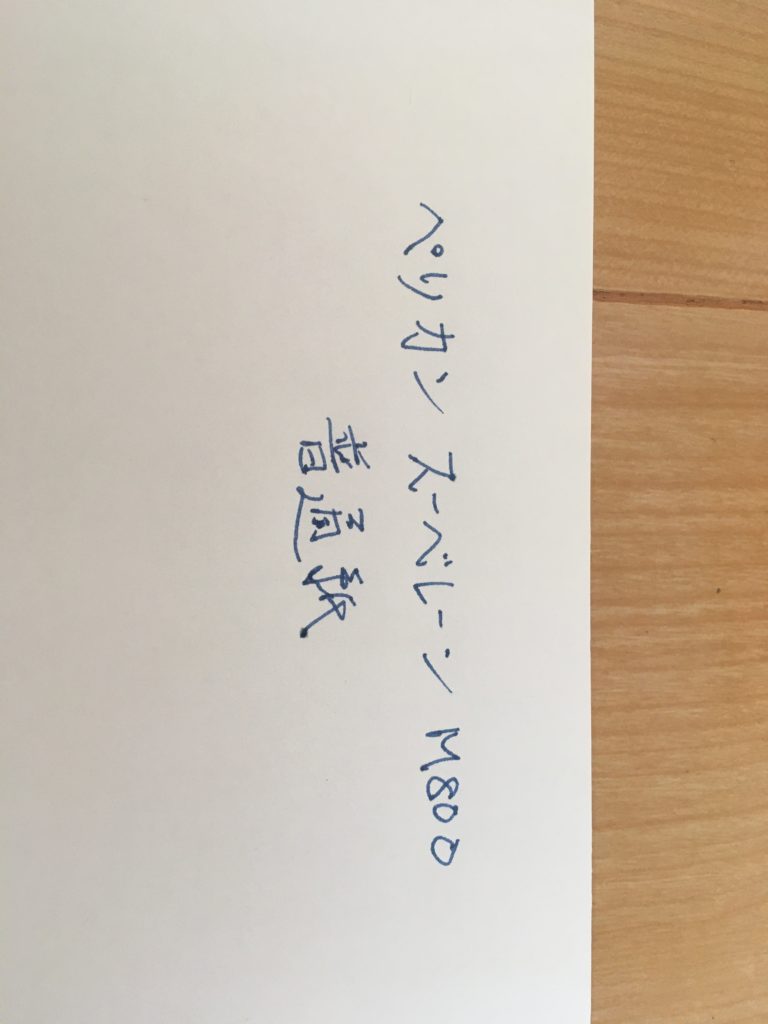 ペリカン スーベレーン M800
普通紙